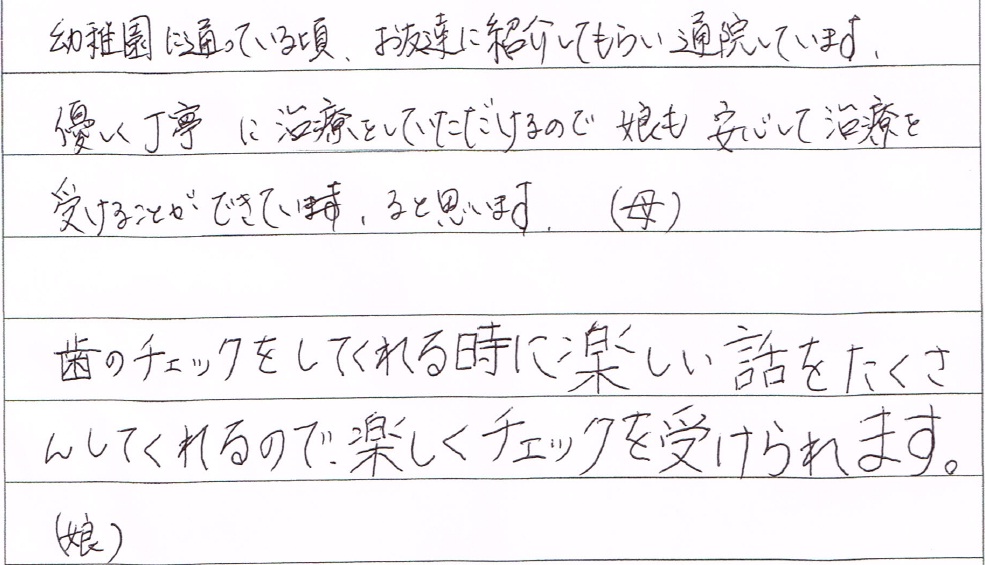 幼稚園に通っている頃、お友達に紹介してもらい通院しています。
優しく丁寧に治療をしていただけるので娘も安心して治療を
受けることができています、ると思います。(母)
歯のチェックをしてくれる時に楽しい話をたくさ
んしてくれるので、楽しくチェックを受けられます。
(娘)